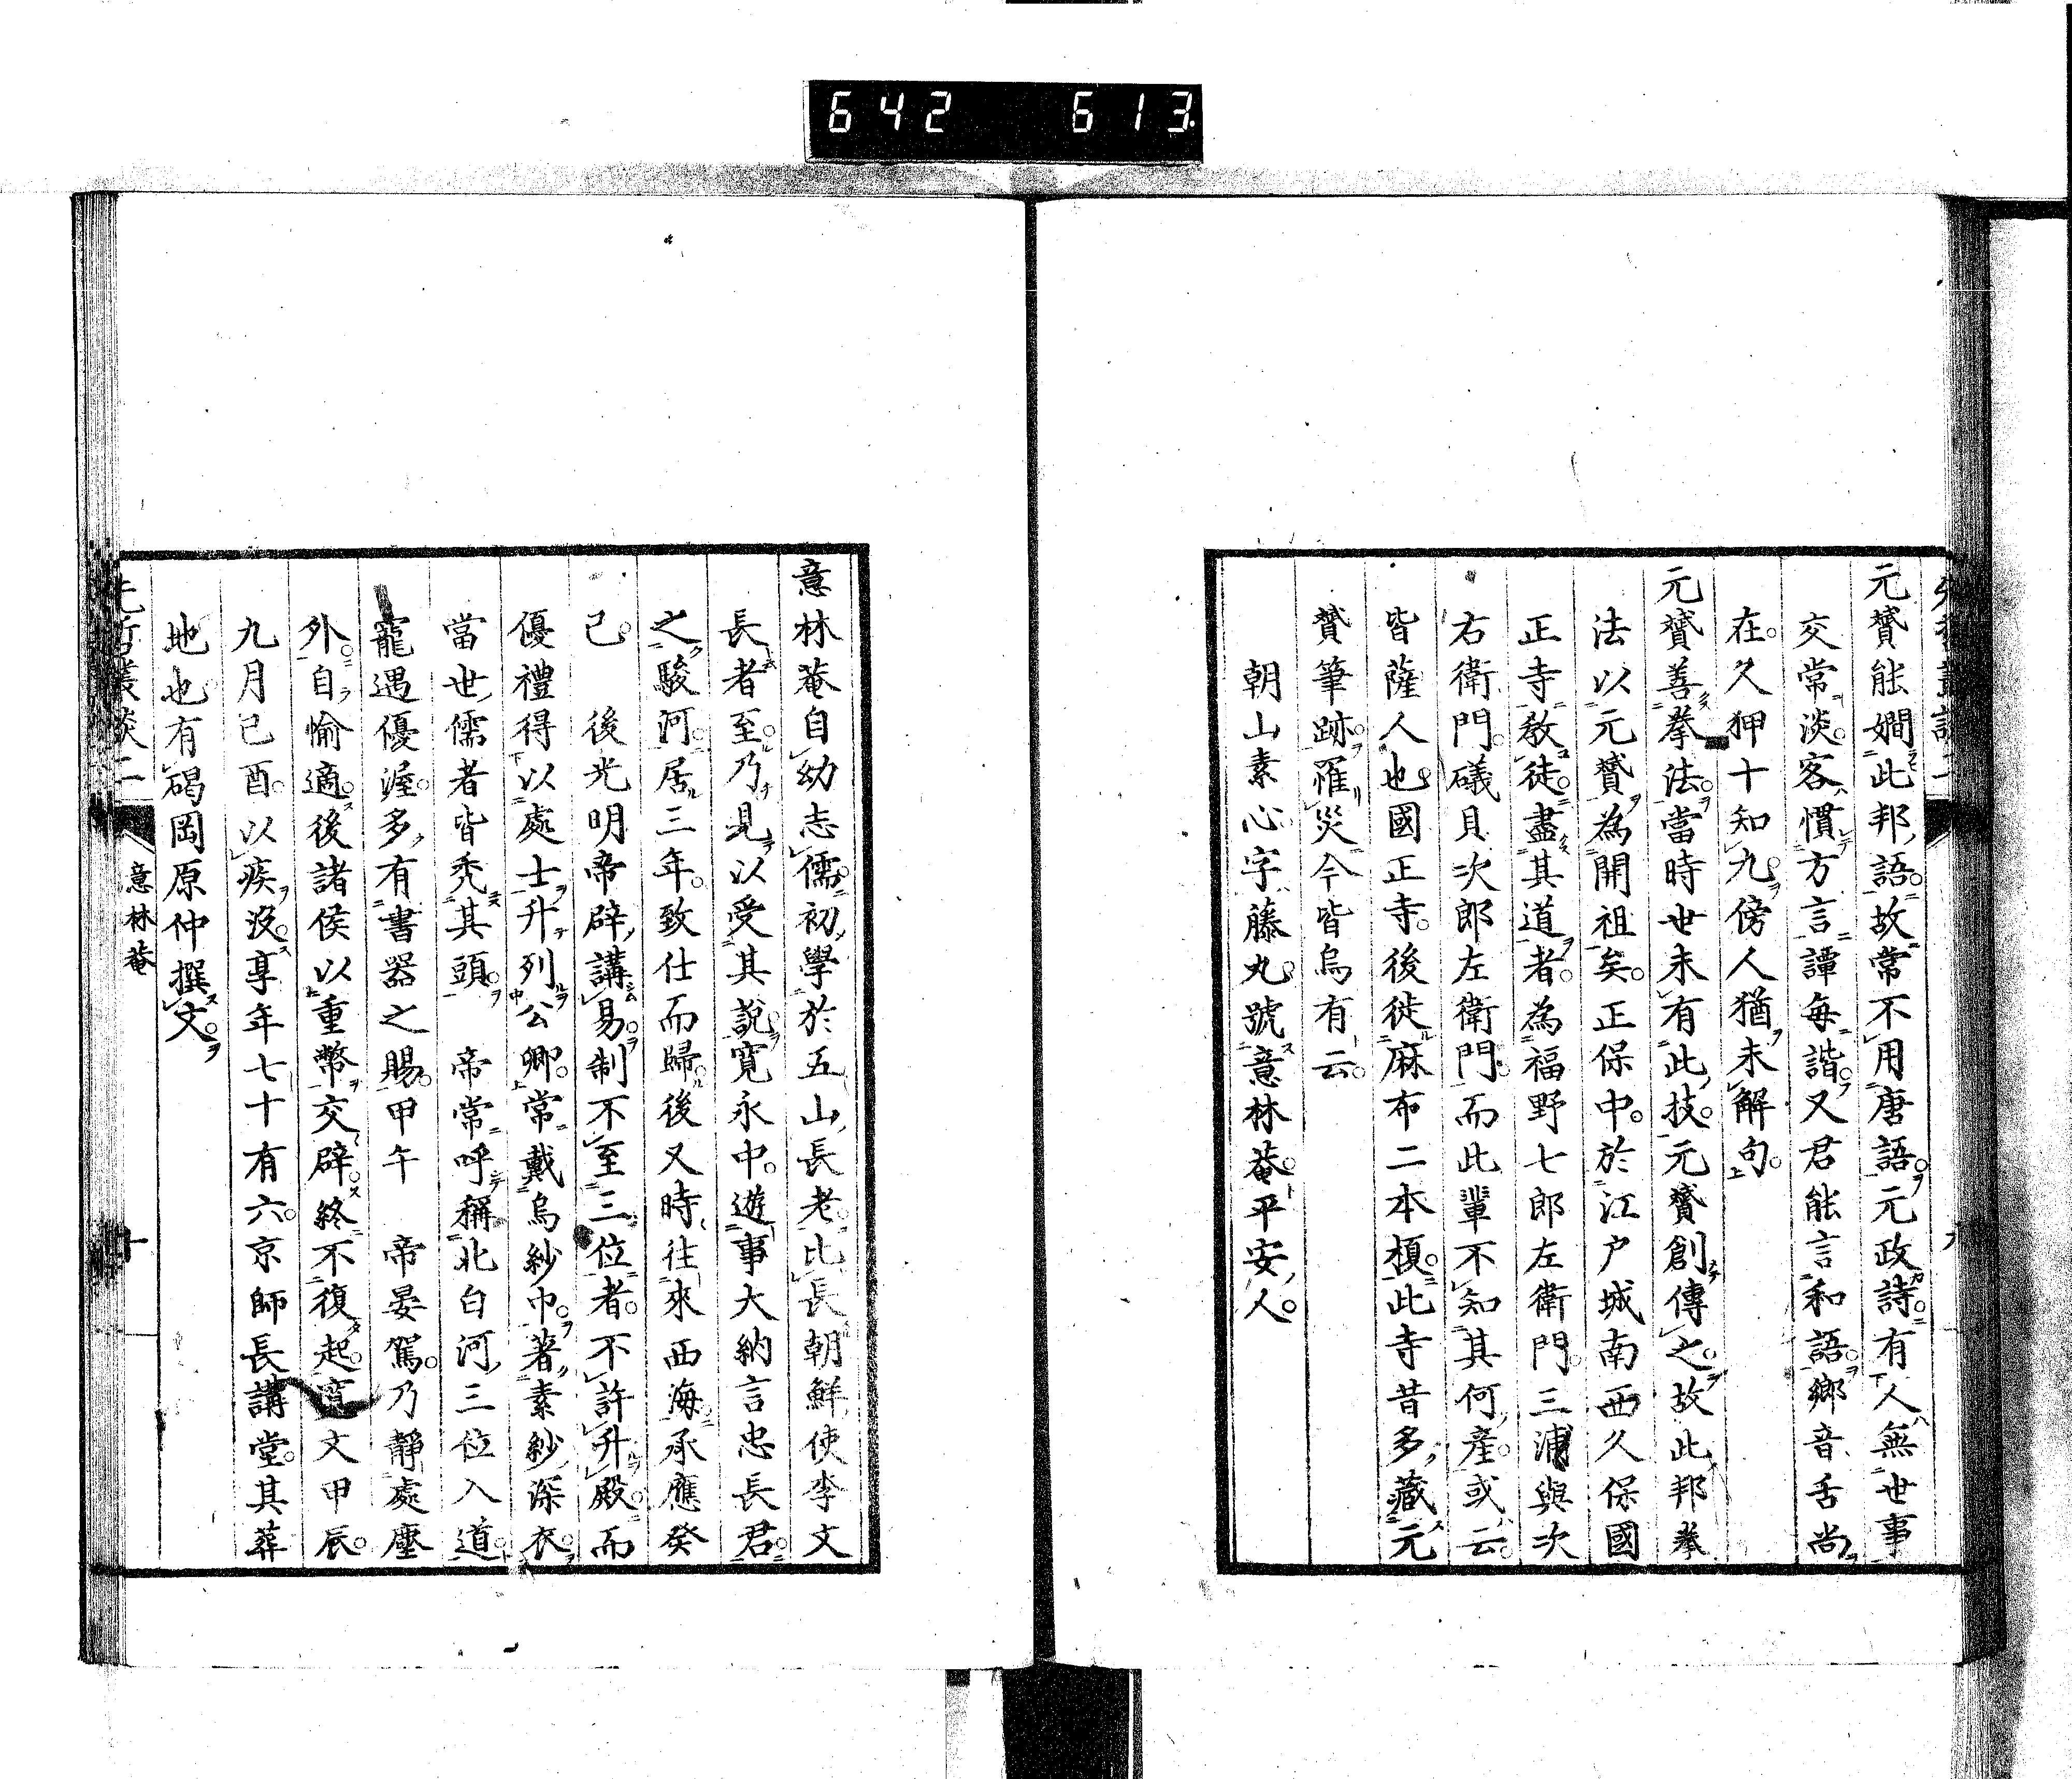 642 613
元贇能嫺此邦語。故常不用唐語。元政詩。有人無世事
交常淡。客慣方言譚每諧。又君能言和語。鄉音舌尚
在。久狎十知九。傍人猶未解句。
元贇善拳法。當時世未有此技。元贇創傳之。故此邦拳
法以元贇為開祖矣。正保中。於江戶城南西久保國
正寺敎徒。盡其道者。為福野七郎左衛門。三浦與次
右衛門。礒貝次郎左衛門。而此輩不知其何產。或云。
皆薩人也。國正寺。後徙麻布二本榎。此寺昔多藏元
贇筆跡。罹災今皆烏有云。
朝山素心字藤丸。號意林菴。平安人。
意林菴自幼志儒。初學於五山長老。比長朝鮮使李文
長者至。乃見以受其說。寬永中。遊事大納言忠長君。
之駿河。居三年。致仕而歸。後又時往來西海。承應癸
已。後光明帝辟講易。制不至三位者。不許升殿。而
優禮得以處士升列公卿。常戴烏紗巾。著素紗深衣。
當世儒者皆禿其頭。帝常呼稱北白河三位入道。
寵遇優渥。多有書器之賜。甲午帝晏駕。乃靜處塵
外。自愉適。後諸侯以重幣交辟。終不復起。寬文甲辰。
九月己酉。以疾沒。享年七十有六。京師長講堂。其葬
地也。有碣岡原仲撰文。
先哲叢談二
意林菴
十